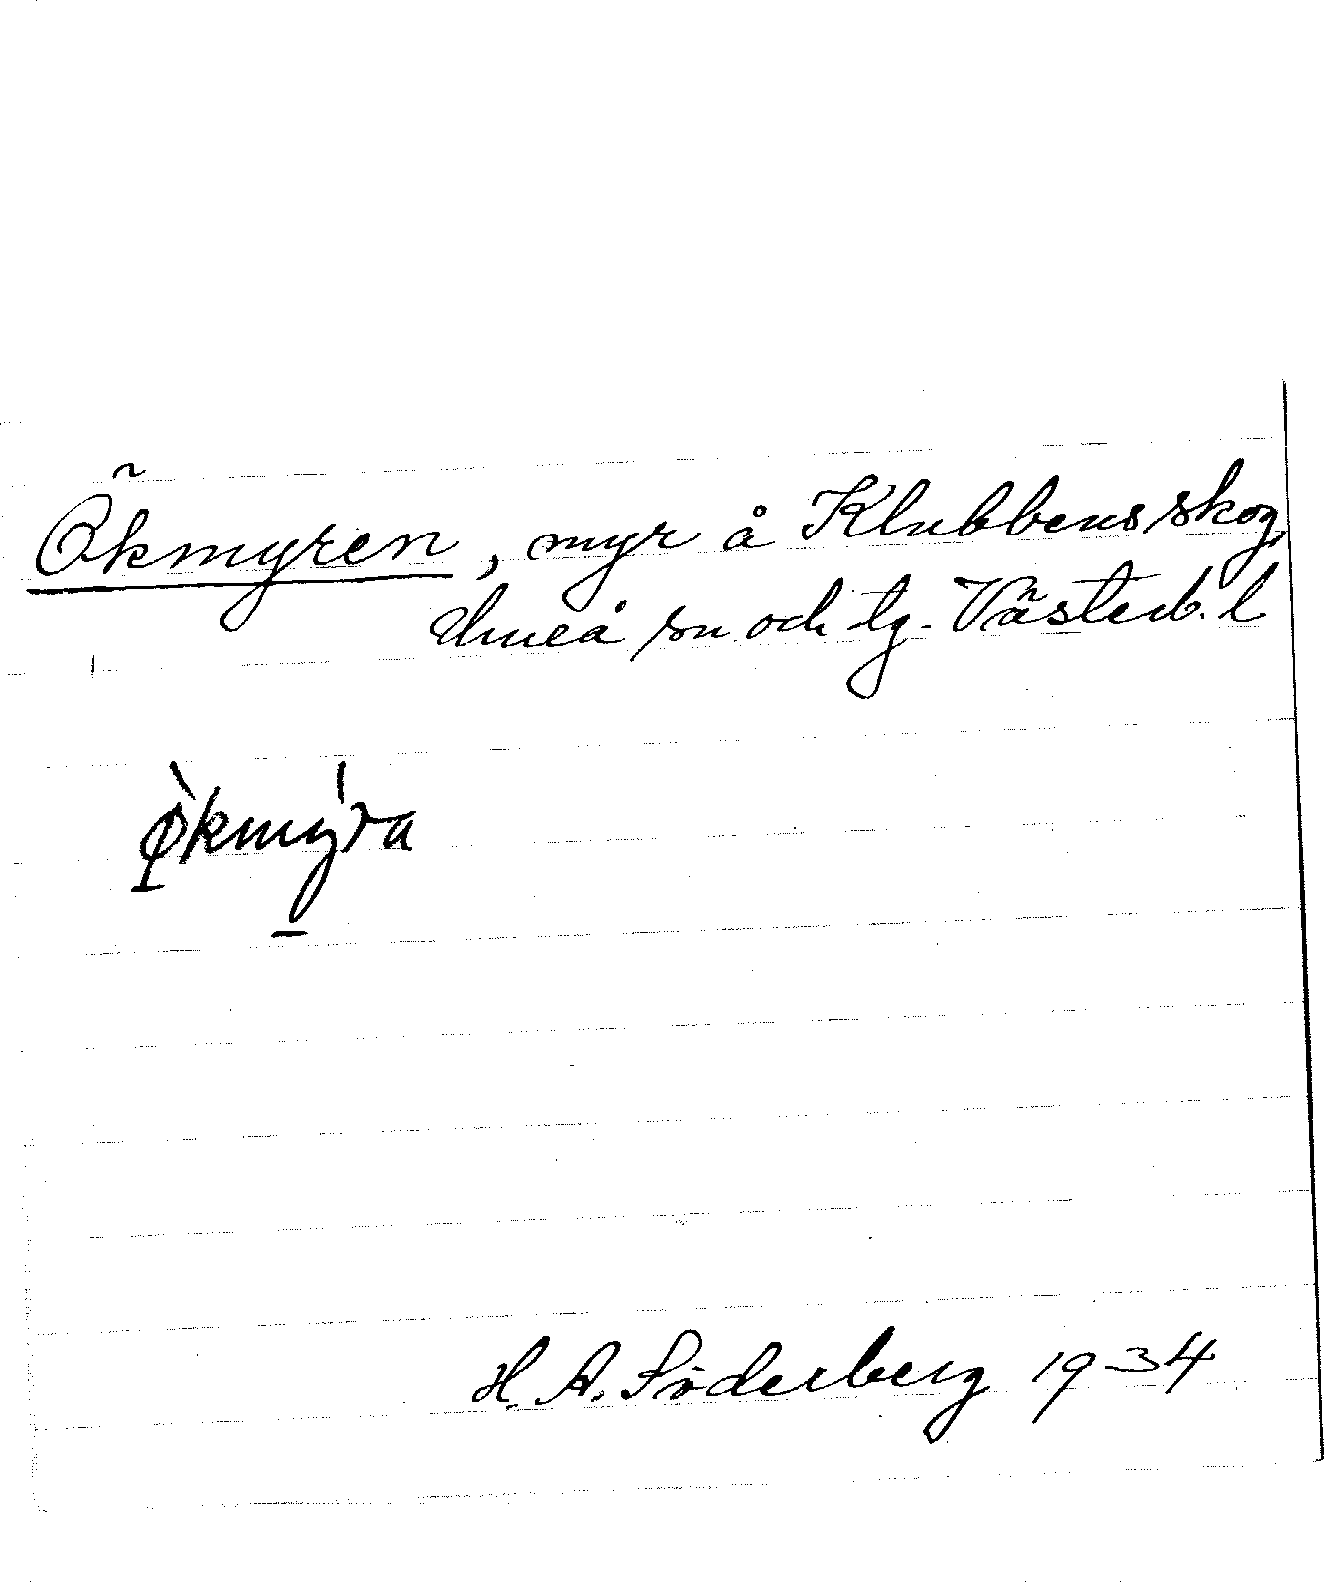 Ökmyren, myr å Klubbens skog,
Umeå sn och tg. Västerb. l
økmy̱ra
H. A. Söderberg 1934